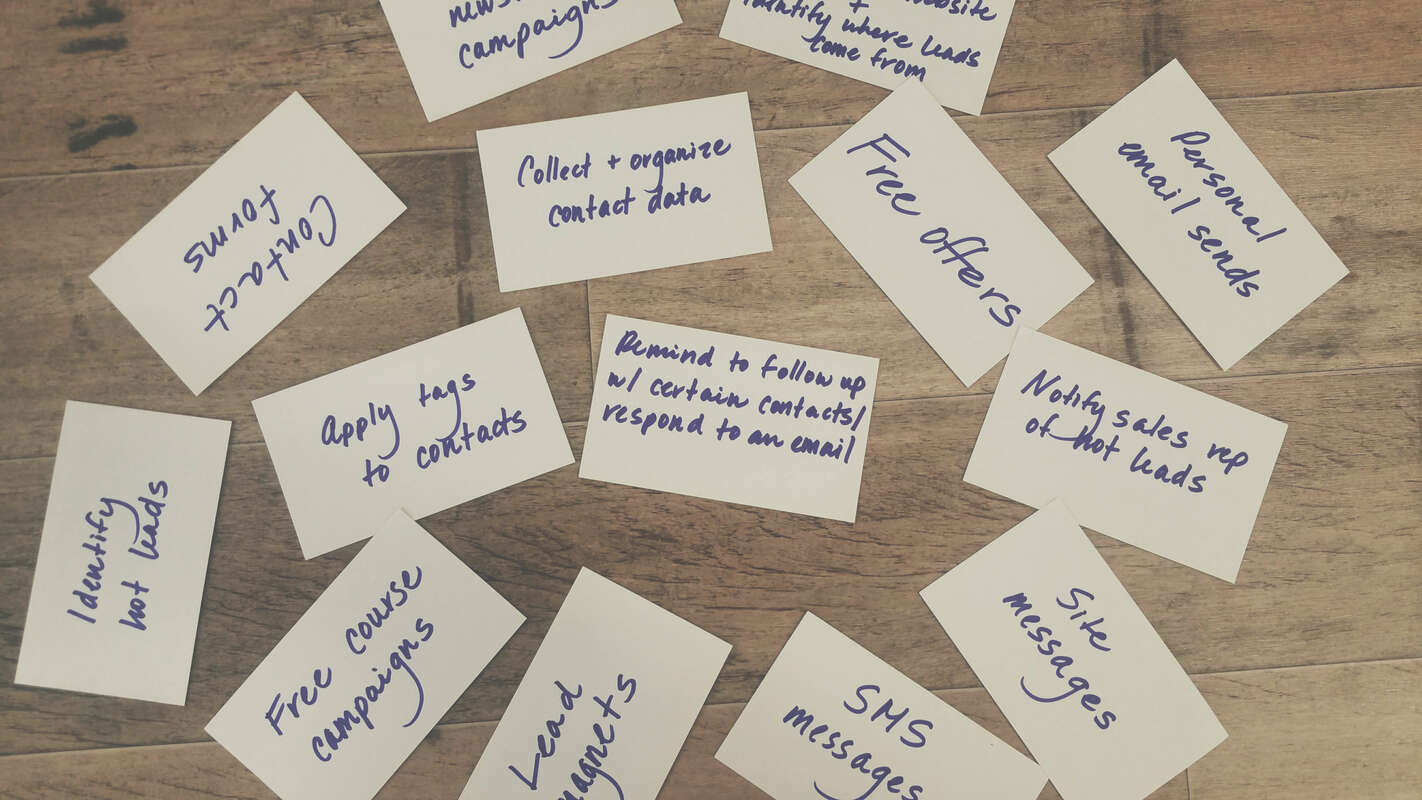 campaigns
+
identify where leads
come from
Contact
forms
Collect + organize
contact data
Free offers
Personal
email sends
Apply tags
to contacts
Remind to follow up
w/ certain contacts/
respond to an email
Notify sales rep
of hot leads
Identify
hot leads
Free course
campaigns
Lead
SMS
messages
Site
messages